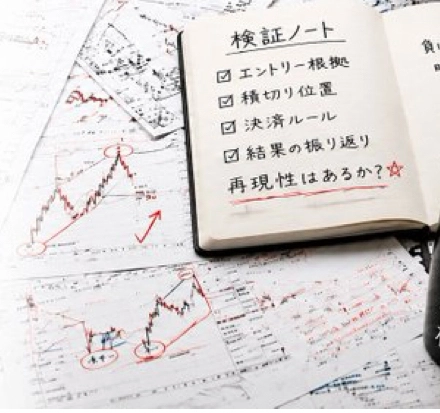 検証ノート
☑ エントリー根拠
☑ 積切り位置
☑ 決済ルール
☑ 結果の振り返り
再現性はあるか?☆